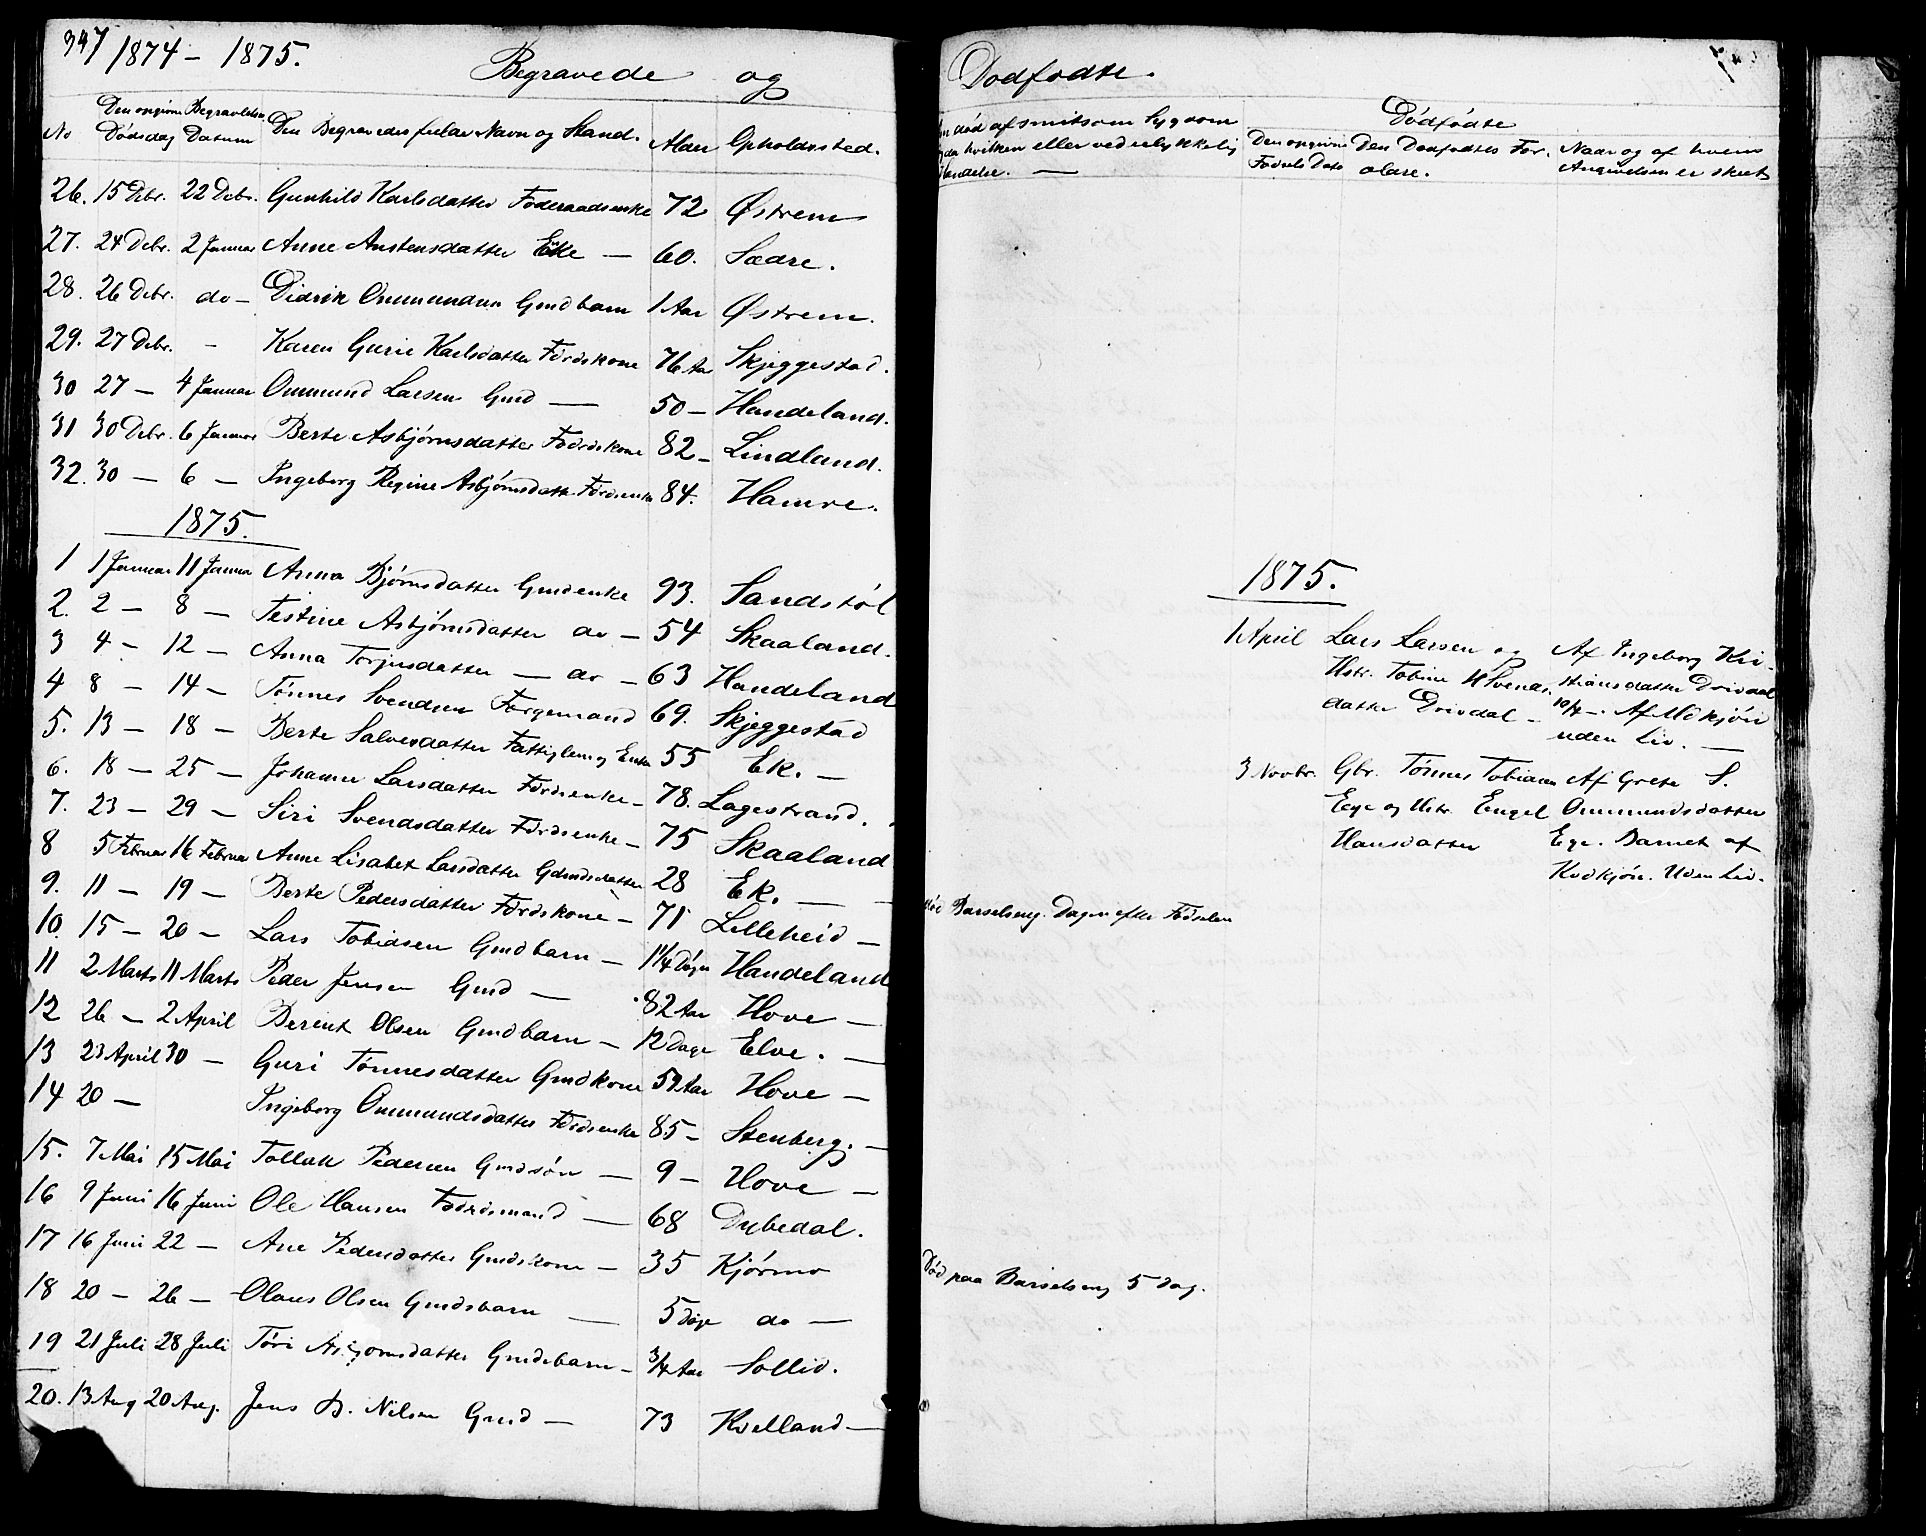 347 1874 – 1875. Begravede og
No Den opgivne Dødsdag Begravelsens Datum Den Begravedes fulde Navn og Stand. Alder Opholdssted.
26. 15 Debr. 22 Debr. Gunhild Karlsdatter Føderaadsenke 72 Østrem
27. 24 Debr. 2 Januar Anne Austensdatter Eke — 60. Sædre.
28. 26 Debr. do – Didrik Ommundsen Gmdbarn 1 Aar Østrem.
29. 27 Debr. – Karen Gurie Karlsdatter Fdrdskone 76 Aar Skjeggestad.
30 27 — 4 Januar Ommund Larsen Gmd — 50 – Handeland.
31 30 Debr. 6 Januar Berte Asbjørnsdatter Fdrdskone 82 – Lindland.
32. 30 — 6 — Ingeborg Regine Asbjørnsdatt Fdrdsenke 84. Hamre.
1875.
1 1 Januar 11 Januar Anna Bjørnsdatter Gmdenke 93. Sandstøl
2. 2 — 8 — Testine Asbjørnsdatter do – 54 Skaaland.
3 4 – 12 – Anna Torjusdatter — do – 63 Handeland
4 8 – 14 – Tønnes Svendsen Færgemand 69. Skjeggestad
5. 13 – 18 – Berte Salvesdatter Fattiglem og Enke 55 Ek. –
6. 18 – 25 – Johanne Larsdatter Fdrdsenke – 78. Lagestrand.
7. 23 – 29 – Siri Svendsdatter Fdrdsenke – 75 Skaaland
8 5 Februar 16 Februar Anne Lisabet Larsdatter Gdmdsdatter 28 Ek. —
9. 11 – 19 – Berte Pedersdatter Fdrdskone – 71 Lilleheid –
10. 15 – 20 – Lars Tobiasen Gmdbarn – 1¼ Døgn Handeland
11 2 Marts 11 Marts Peder Jensen Gmd — 82 Aar Hove –
12 26 – 2 April Berent Olsen Gmdbarn – 12 Dage Elve. —
13 23 April 30 – Guri Tønnesdatter Gmdkone 59 Aar Hove –
14 20 — Ingeborg Ommundsdatter Fdrdsenke 85 – Stenberg. –
15. 7 Mai 15 Mai Tollak Pedersen Gmdsøn — 9 – Hove –
16 9 Juni 16 Juni Ole Hansen Fdrdsmand — 68 Dybedal.
17 16 Juni 22 – Ane Pedersdatter Gmdskone – 35 Kjørmo
18 20 – 26 – Olaus Olsen Gmdsbarn — 5 Dage do —
19 21 Juli 28 Juli Tøri Asbjørnsdatter Gmdsbarn – ¾ Aar Sollid.
20. 13 Aug 20 Aug. Jens B. Nilsen Gmd – 73 Kvelland –
Dødfødte.
død af smitsom Sygdom
hvilken eller ved ulykkelig
Hændelse. —
Dødfødte
Den opgivne Fødsels Dato Den Dødfødtes Forældre. Naar og af hvem Angivelsen er skeet
1875.
1 April Lars Larsen og Af Ingeborg Kri-
Hstr. Tobine Svends stiansdatter Drivdal
datter Drivdal – 10/4 –. Af Mdkjøn
uden Liv. —
3 Novbr. Gbr. Tønnes Tobiasen Af Grete S.
Ege og Hstr. Engel Ommundsdatter
Hansdatter Ege. Barnet af
Kvdkjøn. Uden Liv.
død Barselseng. Dagen efter Fødselen
Død paa Barselseng 5 Dag.